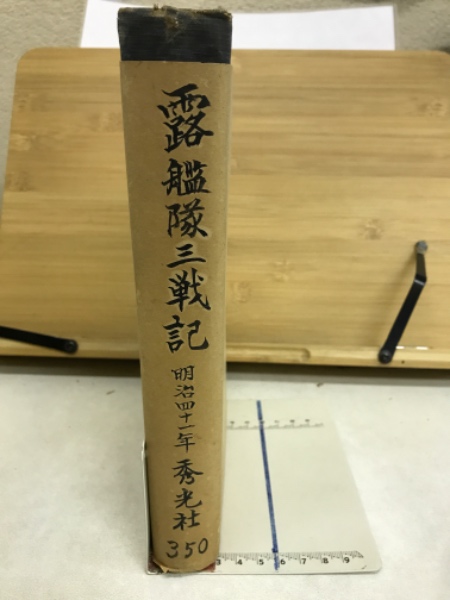 露艦隊三戦記
明治四十一年 秀光社
350
3 4 5 6 7 8 9